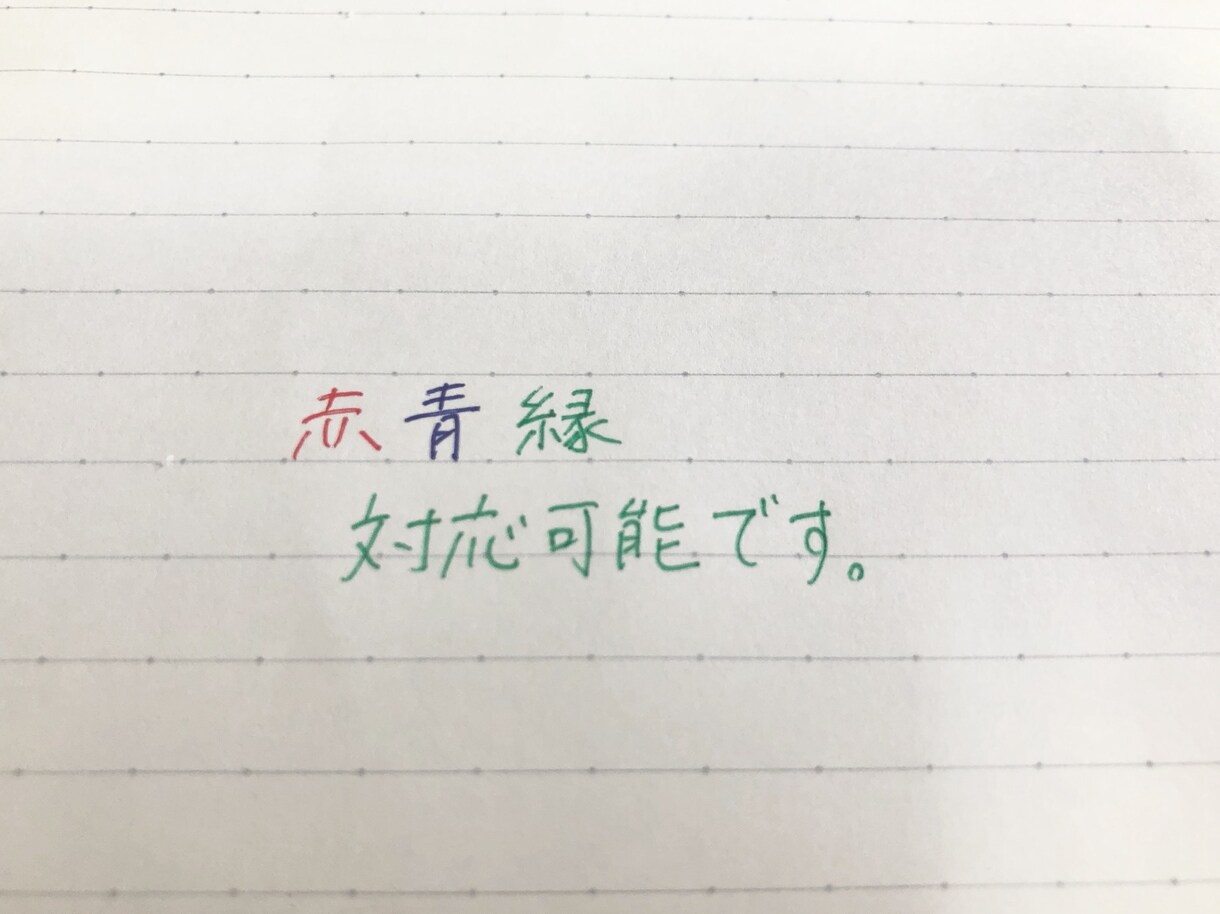 赤青縁
対応可能です。